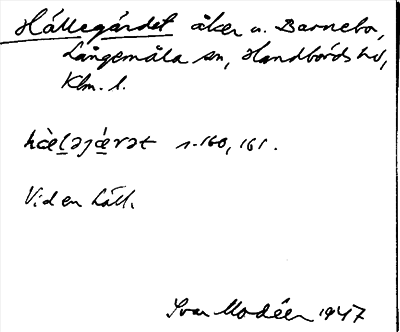 Hällegärdet åker u. Barnebo,
Långemåla sn, Handbörds hd,
Klm. l.
hæ̀ḷəjǽ̣rət s. 160, 161.
Vid en häll.
Ivar Modéer 1947